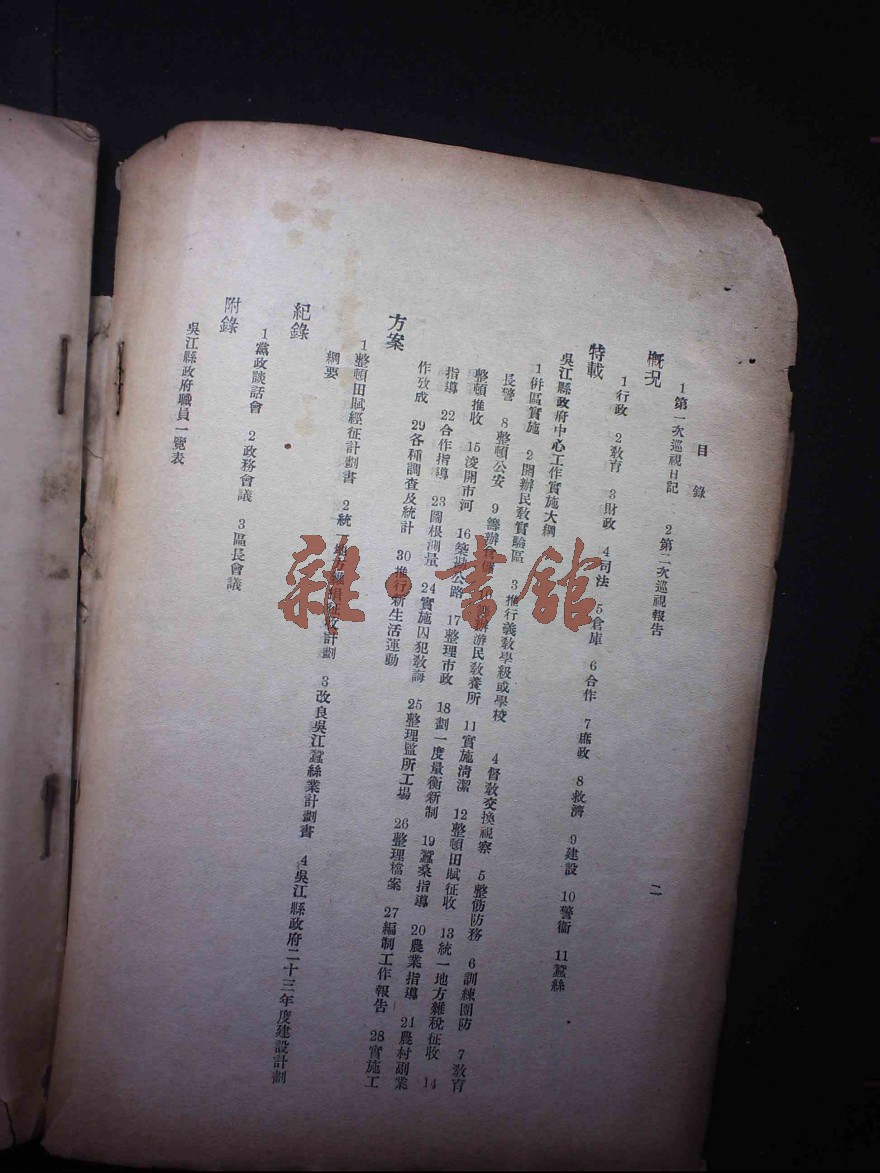 目錄
二
1第一次巡視日記 2第二次巡視報告
概況
1行政 2教育 3財政 4司法 5倉庫 6合作 7庶政 8救濟 9建設 10警衞 11蠶絲
特載
吳江縣政府中心工作實施大綱
1併區實施 2開辦民敎實驗區 3推行義敎學級或學校 4督敎交換視察 5整飭防務 6訓練團防 7敎育
長警 8整頓公安 9籌辦 游民敎養所 11實施清潔 12整頓田賦征收 13統一地方雜稅征收 14
整頓推收 15浚開市河 16築 公路 17整理市政 18劃一度量衡新制 19蠶桑指導 20農業指導 21農村副業
指導 22合作指導 23圖根測量 24實施囚犯敎誨 25整理監所工場 26整理檔案 27編制工作報告 28實施工
作攷成 29各種調查及統計 30推行新生活運動
方案
1整頓田賦經征計劃書 2統一地方雜捐征收計劃 3改良吳江蠶絲業計劃書 4吳江縣政府二十三年度建設計劃
綱要
紀錄
1黨政談話會 2政務會議 3區長會議
附錄
吳江縣政府職員一覽表
雜·書館